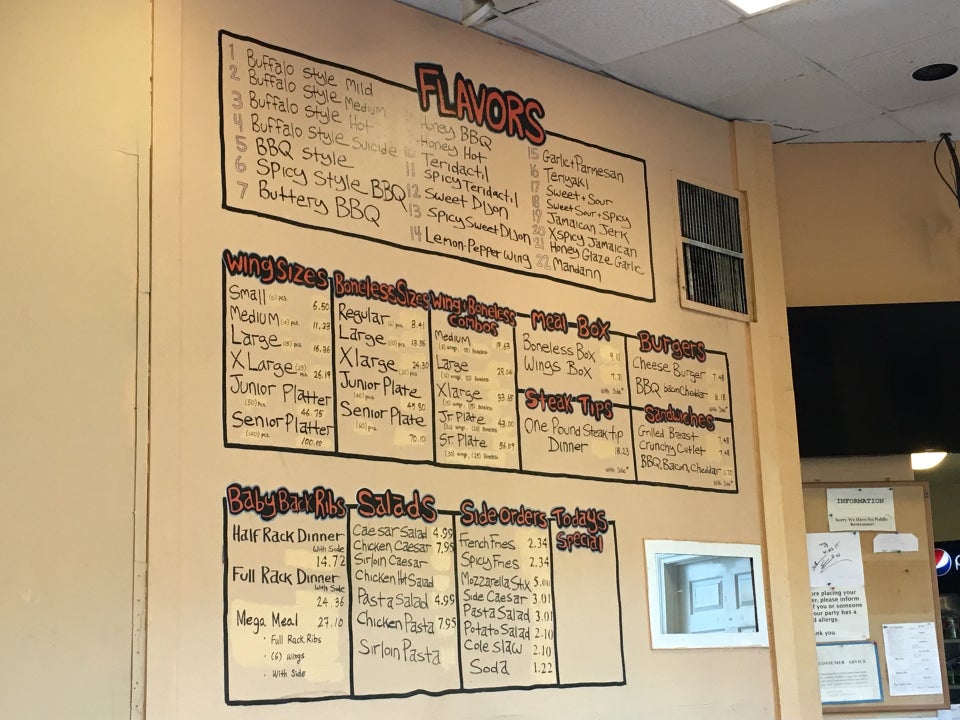 FLAVORS
1 Buffalo Style Mild
2 Buffalo Style Medium
3 Buffalo Style Hot
4 Buffalo Style Suicide
5 BBQ Style
6 Spicy Style BBQ
7 Buttery BBQ
Honey BBQ
Honey Hot
10 Teridactil
11 Spicy Teridactil
12 Sweet Dijon
13 Spicy Sweet Dijon
14 Lemon Pepper Wing
15 Garlic + Parmesan
16 Teriyaki
17 Sweet + Sour
18 Sweet Sour + Spicy
19 Jamaican Jerk
20 XSpicy Jamaican
21 Honey Glaze Garlic
22 Mandarin
Wing Sizes
Small (5) pcs. 6.50
Medium (10) pcs. 11.23
Large (15) pcs. 16.36
X Large (25) pcs. 26.19
Junior Platter
(50) pcs. 46.75
Senior Platter
(120) pcs. 100.00
Boneless Sizes
Regular pcs. 8.41
Large pcs. 13.56
Xlarge (20) pcs. 24.30
Junior Plate
(40) pcs. 45.80
Senior Plate
(60) pcs. 70.10
Wing + Boneless
Combos
Medium 19.63
Large 28.04
Xlarge 33.65
Jr Plate 43.00
Sr. Plate 56.09
Meal Box
Boneless Box 9.11
Wings Box
with Side*
Steak Tips
One Pound Steak tip
Dinner 18.23
with Side*
Burgers
Cheese Burger 7.48
BBQ bacon Cheddar 8.18
with Side*
Sandwiches
Grilled Breast 7.48
Crunchy Cutlet 7.48
BBQ, Bacon, Cheddar
With Side*
Baby Back Ribs
Half Rack Dinner
With Side
14.72
Full Rack Dinner
With Side
24.36
Mega Meal 27.10
· Full Rack Ribs
· (6) Wings
· With Side
Salads
Caesar Salad 4.99
Chicken Caesar 7.95
Sirloin Caesar
Chicken Hot Salad
Pasta Salad 4.99
Chicken Pasta 7.95
Sirloin Pasta
Side Orders
French Fries 2.34
Spicy Fries 2.34
Mozzarella Stix 5.00
Side Caesar 3.01
Pasta Salad 3.01
Potato Salad 2.10
Cole Slaw 2.10
Soda 1.22
Todays
Special
INFORMATION
Sorry We Have No Public
Restrooms!
re placing your
r, please inform
f you or someone
our party has a
d allergy.
nk you.
CONSUMER ADVICE